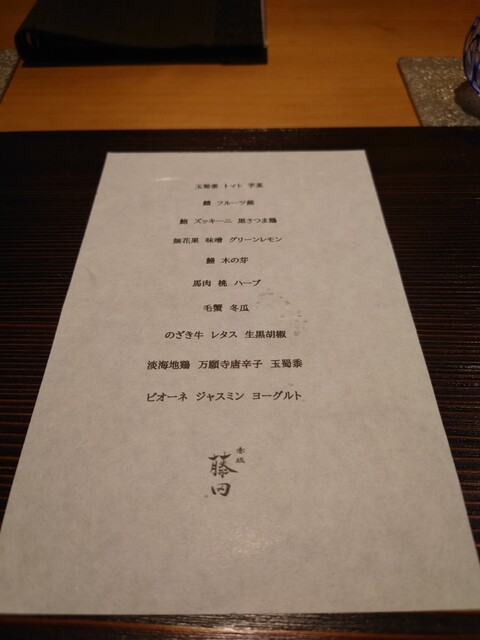 玉蜀黍 トマト 芋茎
鱧 フルーツ鮑
鮑 ズッキーニ 黒さつま鶏
無花果 味噌 グリーンレモン
木の芽
馬肉 桃 ハーブ
毛蟹 冬瓜
のざき牛 レタス 生黒胡椒
淡海地鶏 万願寺唐辛子 玉蜀黍
ピオーネ ジャスミン ヨーグルト
赤坂
藤田